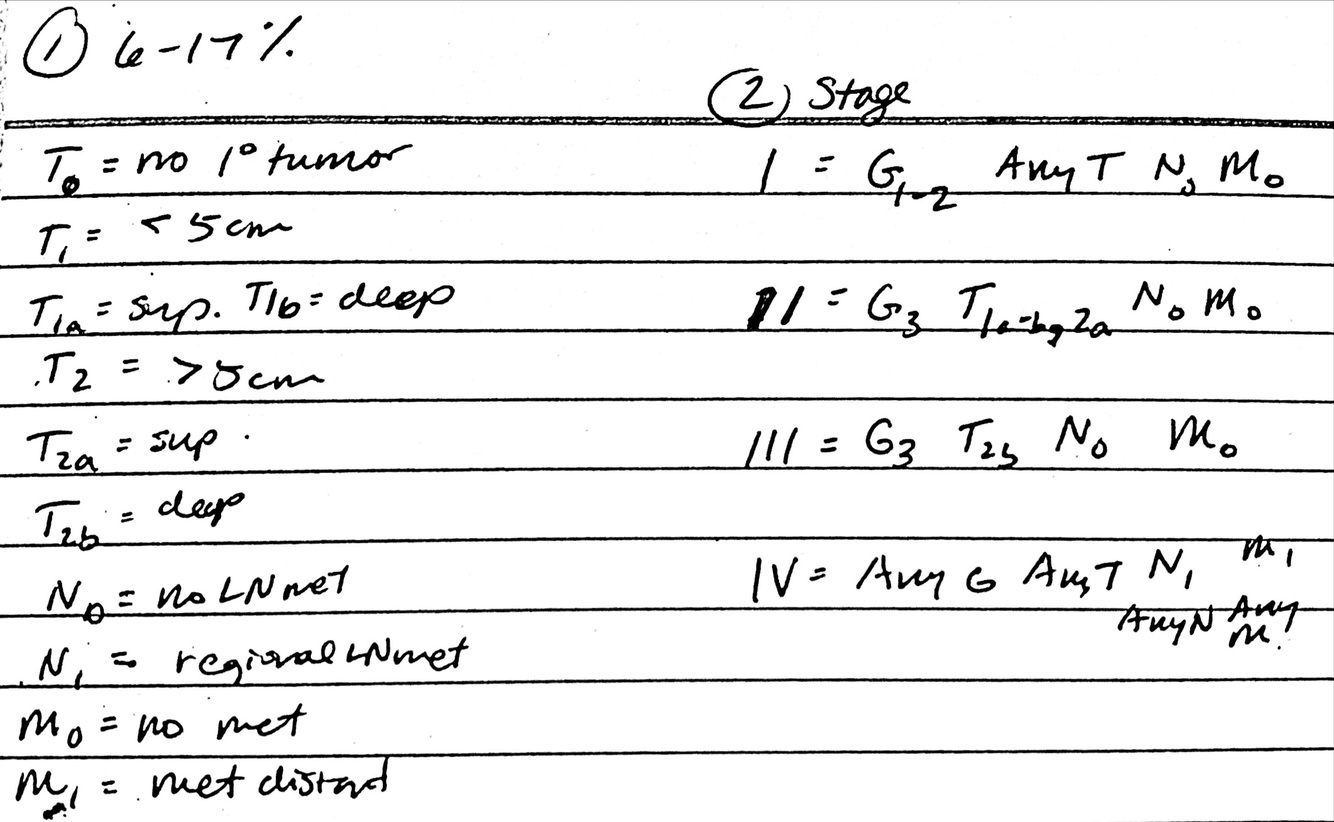 ① 6-17%
② Stage
T₀ = no 1° tumor
T₁ = < 5cm
T₁ₐ = sup. T1b = deep
T₂ = > 5cm
T₂ₐ = sup.
T₂b = deep
N₀ = no LN met
N₁ = regional LN met
M₀ = no met
M₁ = met distant
I = G₁-₂ Any T N₀ M₀
II = G₃ T₁ₐ-b, 2a N₀ M₀
III = G₃ T₂b N₀ M₀
IV = Any G Any T N₁ M₁
Any N Any
M.